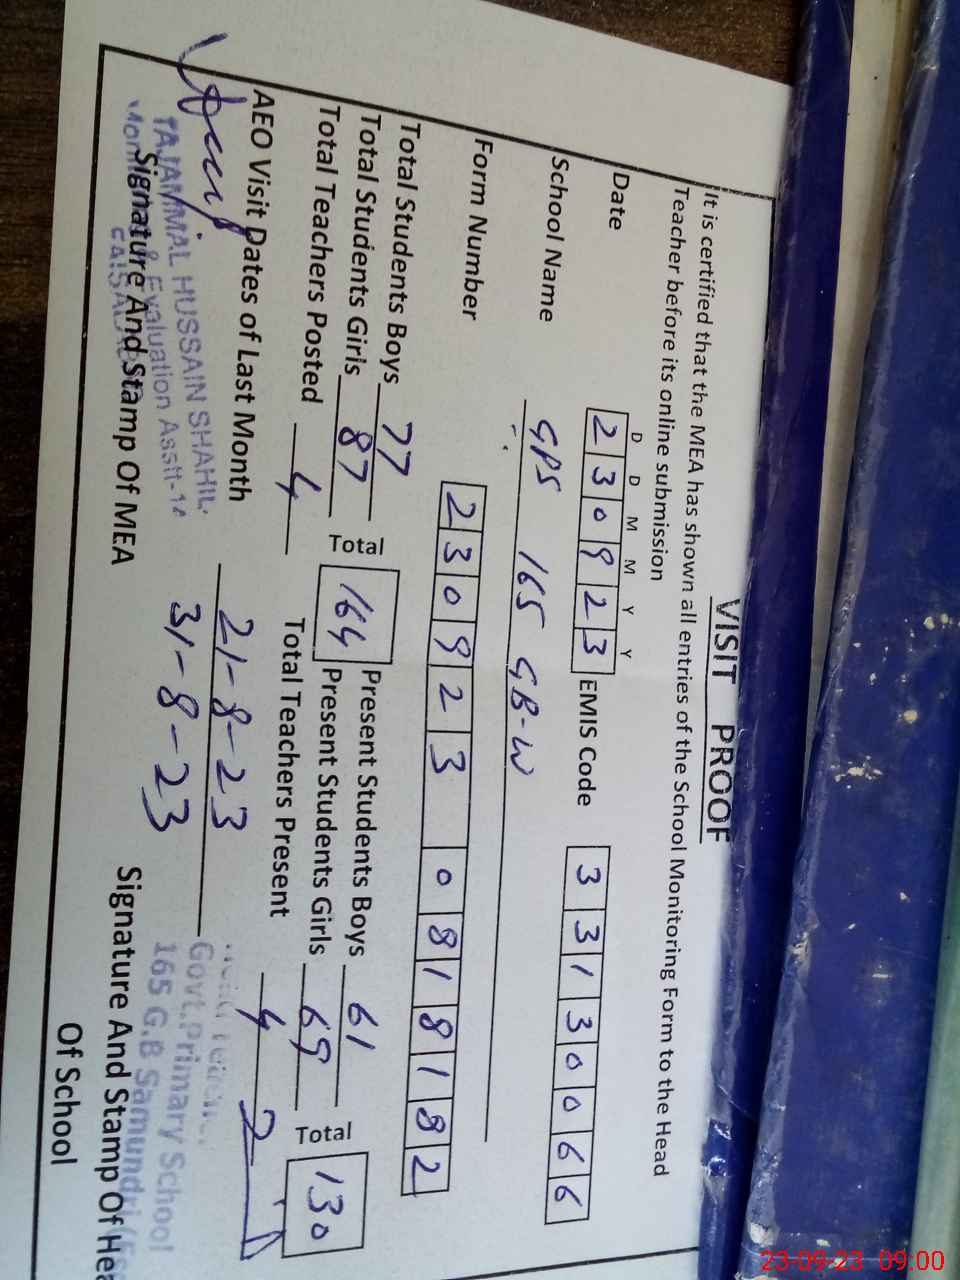 VISIT PROOF
It is certified that the MEA has shown all entries of the School Monitoring Form to the Head
Teacher before its online submission
D D M M Y Y
Date 230923 EMIS Code 33130066
School Name GPS 165 GB-W
Form Number 230923 0818182
Total Students Boys 77 Present Students Boys 61
Total Students Girls 87 Total 164 Present Students Girls 69 Total 130
Total Teachers Posted 4 Total Teachers Present 4
AEO Visit Dates of Last Month 21-8-23
31-8-23
TAJAMMAL HUSSAIN SHAHIL
& Evaluation Asstt-14
Signature And Stamp Of MEA
Govt.Primary School
165 G.B Samundri
Signature And Stamp Of Hea
Of School
23-09-23 09:00